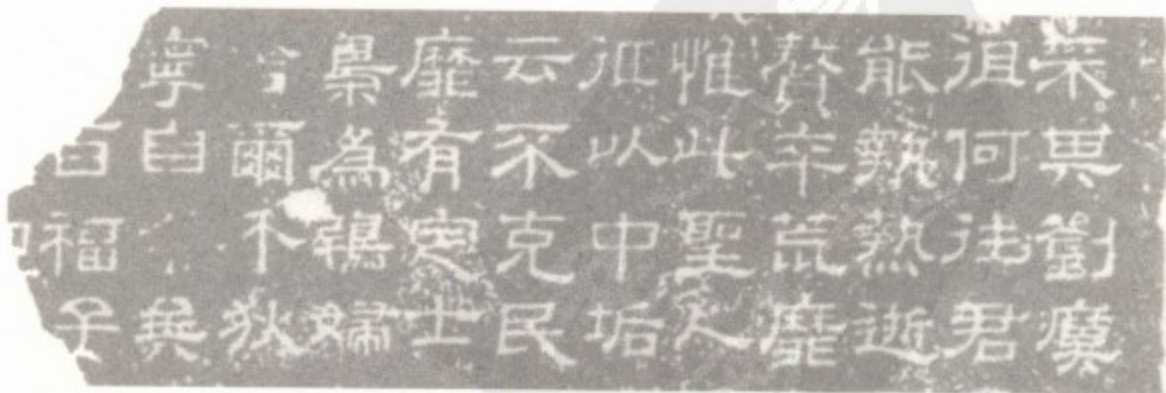 采其劉瘼
徂何往君
能執熱逝
贅卒荒靡
惟此聖人
征以中垢
云不克民
靡有定士
梟為鴟婦
爾不狄
寧自矣
百福子